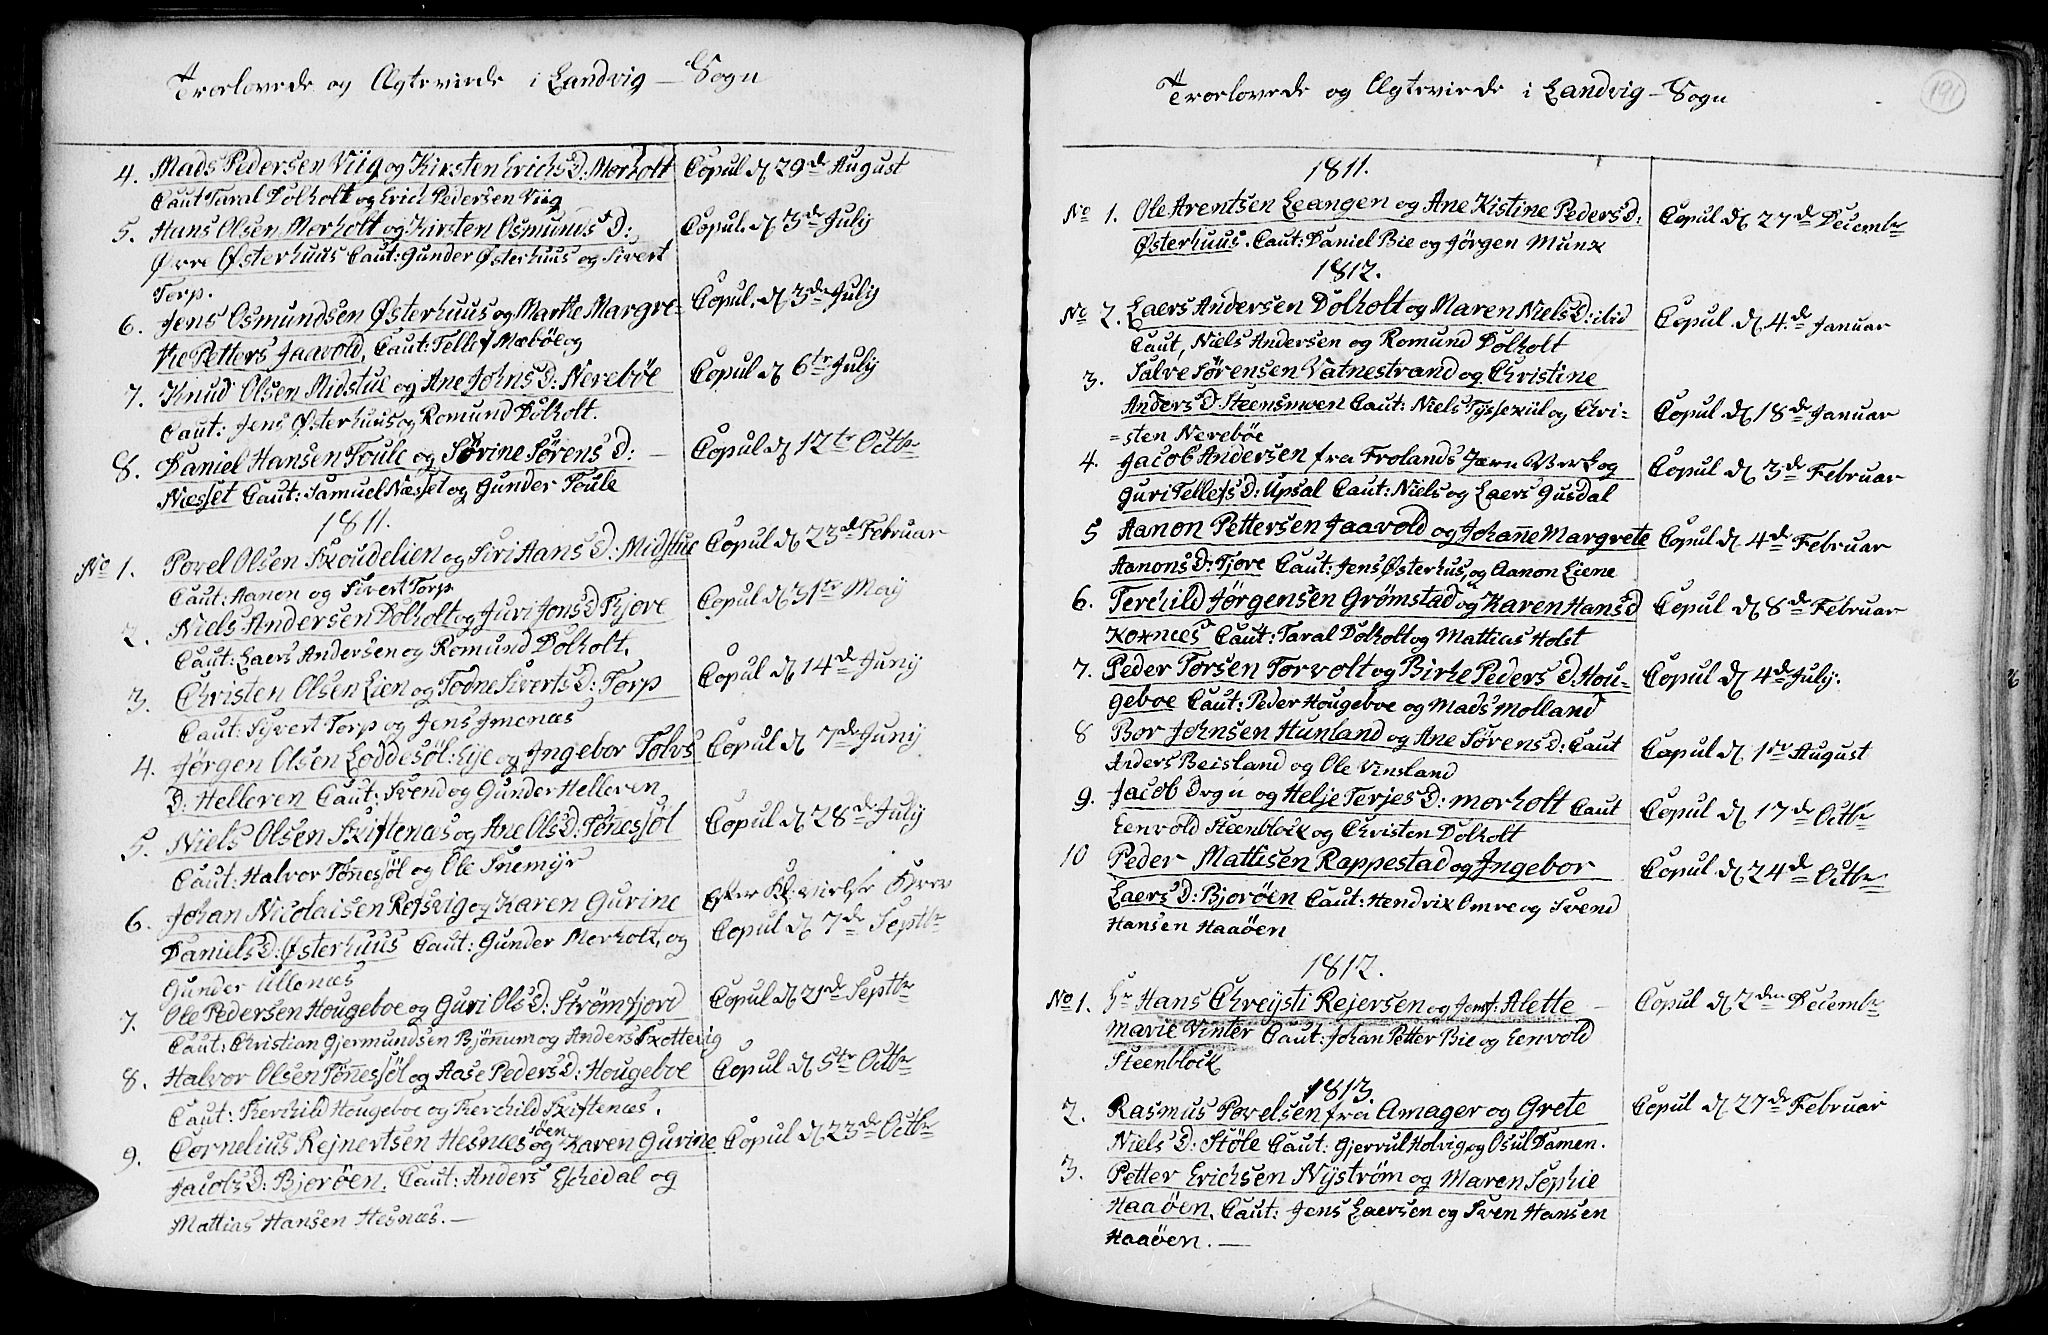 Trorlovede og Ægteviede i Landvig Sogn
4. Mads Pedersen Viig og Kirsten Erichs D: Morholt Copul d 29de August
Caut Taral Dolholt og Erich Pedersen Viig
5. Hans Olsen Morholt og Kirsten Osmunds D: Copul. d 3de July
Øvre Østerhuus Caut: Gunder Østerhuus og Sivert
Torp.
6. Jens Osmundsen Østerhuus og Marthe Margre- Copul. d 3de July
the Petters Jaavold, Caut: Tellef Mæbøe og
7. Knud Olsen Midstue og Ane Johns D: Nerebøe Copul d 6te July
Caut: Jens Østerhuus og Romund Dolholt.
8. Daniel Hansen Foule og Sørine Sørens D: — Copul d 12te Octbr
Næsset Caut: Samuel Næsset og Gunder Foule
1811.
No 1. Povel Olsen Skoudelien og Siri Aans D: Midstue Copul d 23de Februar
Caut: Aanon og Sivert Torp
2. Niels Andersen Dolholt og Juri Jons D Fjore Copul d 31te May
Caut: Laers Andersen og Romund Dolholt.
3. Christen Olsen Lien og Todne Siverts D: Torp Copul d 14de Juny
Caut: Syvert Torp og Jens Imenæs
4. Jørgen Olsen Loddesøl: Eje og Ingebor Tolvs Copul d 7de Juny
D: Helleren Caut: Svend og Gunder Helleren
5. Niels Olsen Skiftenæs og Ane Ols D: Tønesøl Copul d 28de July
Caut: Halvor Tønesøl og Ole Snemyr
6. Johan Nicolaisen Refsvig og Karen Gurine Efter Kl: Vielse Brev
Daniels D: Østerhuus Caut: Gunder Morholt, og Copul d 7de Septbr
Gunder Ullenæs
7. Ole Pedersen Hougeboe og Guri Ols D: Strømfjord Copul d 21de Septbr
Caut: Christian Gjermundsen Bjønum og Anders Skottevig
8. Halvor Olsen Tønesøl og Aase Peders D: Hougeboe Copul d 5te Octbr
Caut: Therchild Hougeboe og Therchild Skiftenæs.
9. Cornelius Rejnertsen Hesnæsøen og Karen Gurine Copul d 23de Octbr
Jacobs D: Bjorøen. Caut: Anders Eschedal og
Mattias Hansen Hesnæs. —
Trorlovede og Ægteviede i Landvig Sogn
191
1811.
No 1. Ole Arentsen Leangen og Ane Kistine Peders D: Copul d 27de Decembr
Østerhuus. Caut: Daniel Bie og Jørgen Munk
1812.
No 2. Laers Andersen Dolholt og Maren Niels D: ibid Copul d 4de Januar
Caut, Niels Andersen og Romund Dolholt
3. Salve Sørensen Vatnestrand og Christine
Anders D: Steensmoen Caut: Niels Tyssekiil og Chri= Copul d 18de Januar
=sten Nerebøe
4. Jacob Andersen fra Frolands Jærn Verk og Copul d 3de Februar
Guri Tellefs D: Upsal Caut: Niels og Laers Gusdal
5 Aanon Pettersen Jaavold og Johanne Margrete Copul d 4de Februar
Aanons D: Fjore Caut: Jens Østerhus, og Aanon Liene
6. Terchild Jørgensen Grømstad og Karen Hans D Copul d 8de Februar
Koknæs Caut: Taral Dolholt og Mattias Holst
7. Peder Torsen Torvolt og Birhe Peders D: Hou- Copul d 4de July.
geboe Caut: Peder Hougeboe og Mads Molland
8 Bor Johnsen Hunland og Ane Sørens D: Caut Copul d 1te August
Anders Beisland og Ole Vinsland
9. Jacob og Helje Terjes D: Morholt Caut Copul d 17de Octbr
Eenvold Steenblock og Christen Dolholt
10 Peder Mattisen Rappestad og Ingebor Copul d 24de Octbr
Laers D: Bjorøen Caut: Hendrik Omre og Svend
Hansen Haaøen
1812.
No 1. Hr Hans Chreysti Rejersen og Jomf: Alette — Copul d 2den Decembr
Marie Vinter Caut: Johan Petter Bie og Eenvold
Steenblock
1813.
2. Rasmus Povelsen fra Amager og Grete Copul d 27de Februar
Niels D: Støle Caut: Gjervul Holvig og Osul Damen.
3. Petter Erichsen Nyström og Maren Sophie
Haaøen. Caut: Jens Laersen og Sven Hansen
Haaøen. —